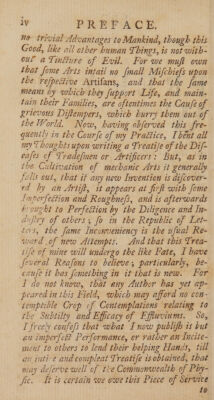 iv PREFACE.
no trivial Advantages to Mankind, though this
Good, like all other human Things, is not with-
out a Tincture of Evil. For we must own
that some Arts intail no small Mischiefs upon
the respective Artisans, and that the same
means by which they support Life, and main-
tain their Families, are oftentimes the Cause of
grievous Distempers, which hurry them out of
the World. Now, having observ'd this fre-
quently in the Court of my Practice, I bent all
my Thoughts upon writing a Treatise of the Dis-
eases of Tradesmen or Artificers: But, as in
the Cultivation of mechanic Arts it generally
falls out, that if any new Invention is discover-
ed by an Artist, it appears at first with some
Imperfection and Roughness, and is afterwards
brought to Perfection by the Diligence and In-
dustry of others; so in the Republic of Let-
ters, the same Inconveniency is the usual Re-
ward of new Attempts. And that this Trea-
tise of mine will undergo the like Fate, I have
several Reasons to believe; particularly, be-
cause it has something in it that is new. For
I do not know, that any Author has yet ap-
peared in this Field, which may afford no con-
temptible Crop of Contemplations relating to
the Subtilty and Efficacy of Effluviums. So,
I freely confess that what I now publish is but
an imperfect Performance, or rather an Incite-
ment to others to lend their helping Hands, till
an intire and compleat Treatise is obtained, that
may deserve well of the Commonwealth of Phy-
sic. It is certain we owe this Piece of Service
to